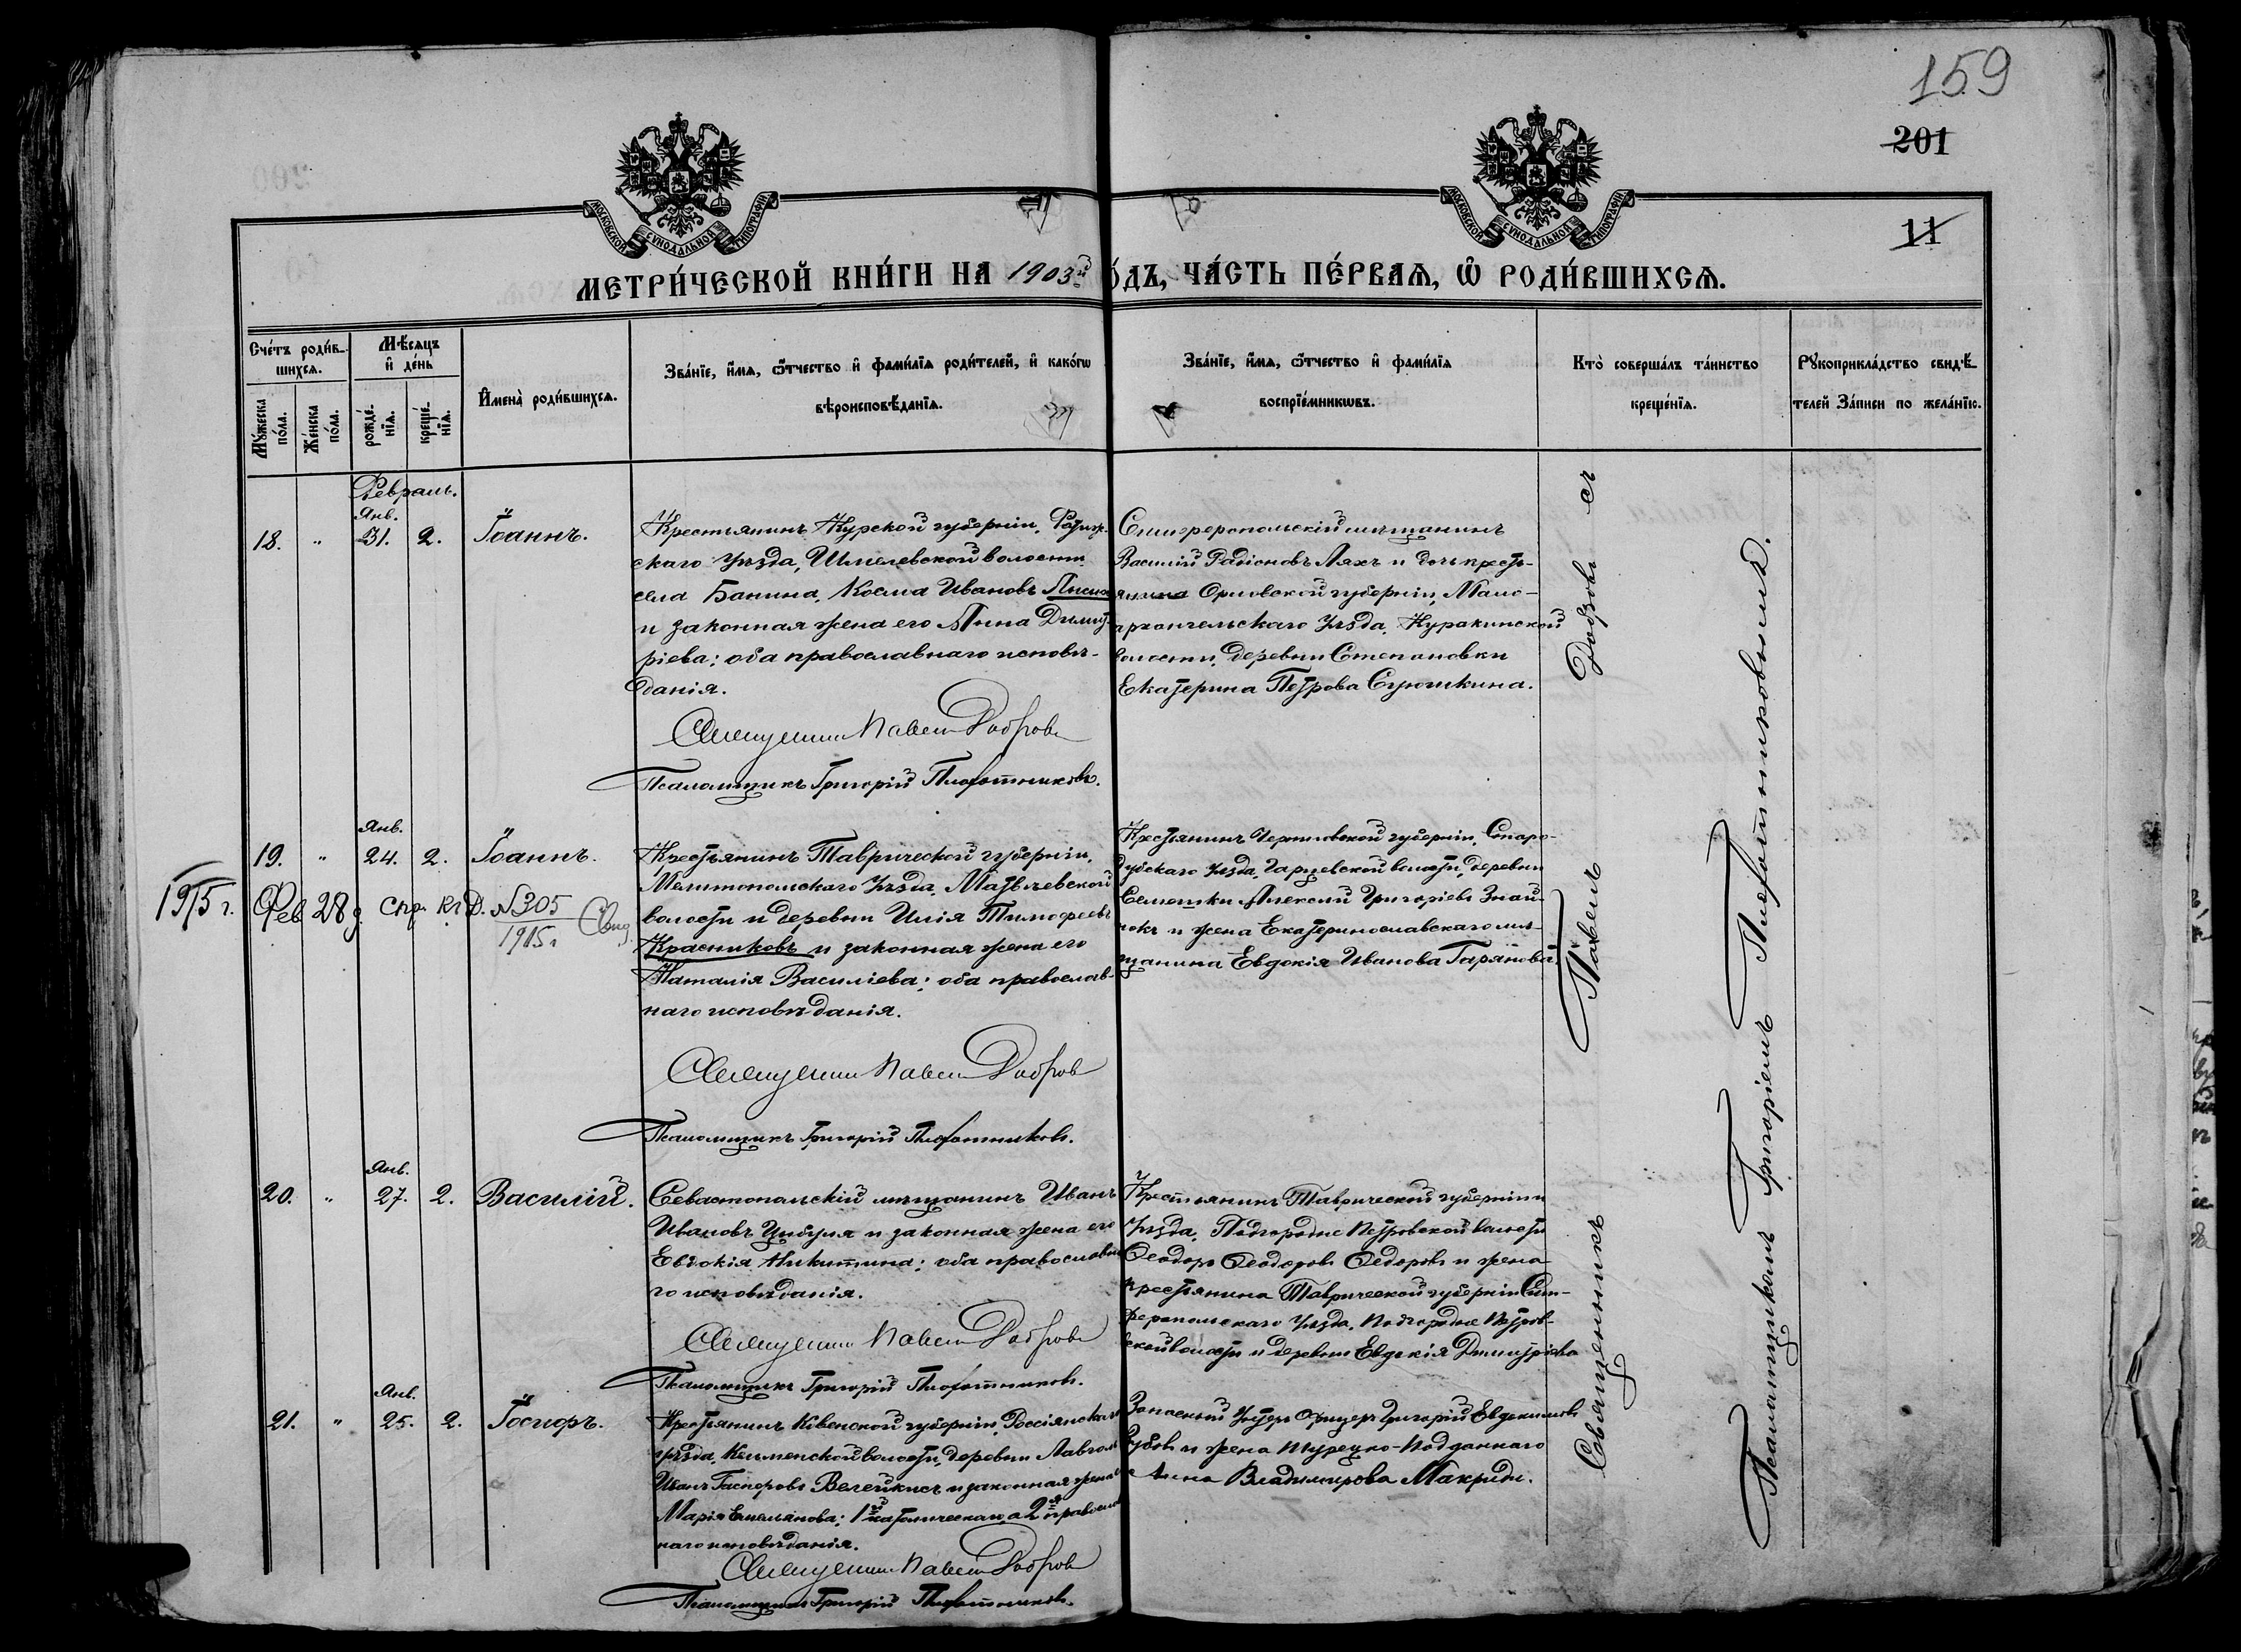 159
201
11
МОСКОВСКОЙ СѴНОДАЛЬНОЙ ТИПОГРАФІИ
МОСКОВСКОЙ СѴНОДАЛЬНОЙ ТИПОГРАФІИ
МЕТРИ́ЧЕСКОЙ КНИ́ГИ НА 1903й
О́ДЪ, ЧА́СТЬ ПЕ́РВАѦ, Ѿ РОДИ́ВШИХСѦ.
Сче́тъ роди́в-
шихсѧ.
Мꙋ́жеска по́ла.
Же́нска по́ла.
Мѣ́сѧцъ и҆ де́нь
рожде́-
нїѧ.
креще́-
нїѧ.
И҆мена̀ роди́вшихсѧ.
Зва́нїе, и҆́мѧ, ѻ҆́тчество и҆ фами́лїѧ роди́телей, и҆ како́гѡ
вѣроисповѣ́данїѧ.
Зва́нїе, и҆́мѧ, ѻ҆́тчество и҆ фами́лїѧ
воспрїе́мникѡвъ.
Кто̀ соверша́лъ та́инство
креще́нїѧ.
Рꙋкоприкла́дство свидѣ́-
телей за́писи по жела́нїю.
Февраль.
Янв.
18. " 31. 2. Іоаннъ.
Крестьянинъ Курской губерніи,
скаго уѣзда, Шмелевской волости
села Банина, Косма Ивановъ
и законная жена его Анна Димит-
ріева; оба православнаго исповѣ-
данія.
Священникъ Павелъ Добровъ
Псаломщикъ Григорій Плотниковъ.
Симферопольскій мѣщанинъ
Василій Радіоновъ Ляхъ и дочь кресть-
янина Орловской губерніи, Мало-
архангельскаго уѣзда, Куракинской
волости, деревни Степановки
Екатерина Петрова Сурюшкина.
Янв.
19. " 24. 2. Іоаннъ.
Крестьянинъ Таврической губерніи,
Мелитопольскаго уѣзда, Матвѣевской
волости и деревни Илія Тимофеевъ
Красниковъ и законная жена его
Наталія Василіева; оба православ-
наго исповѣданія.
Священникъ Павелъ Добровъ
Псаломщикъ Григорій Плотниковъ.
1915 г. Фев 28 д. спр. № 305
1915 г
Крестьянинъ Черниговской губерніи, Старо-
дубскаго уѣзда, волости, деревни
Алексѣй Григоріевъ
и жена Екатеринославскаго мѣ-
щанина Евдокія Иванова Гарянова.
Янв.
20. " 27. 2. Василій.
Севастопольскій мѣщанинъ Иванъ
Ивановъ Цибуля и законная жена его
Евдокія Никитина; оба православна
го исповѣданія.
Священникъ Павелъ Добровъ
Псаломщикъ Григорій Плотниковъ.
Крестьянинъ Таврической губерніи
уѣзда, Подгородне Петровской волости
Ѳеодоръ Ѳеодоровъ Ѳедоровъ и жена
крестьянина Таврической губерніи Сим-
феропольскаго уѣзда, Подгородне Петров-
ской волости и деревни Евдокія Димитріева
Янв.
21. " 25. 2. Іосифъ.
Крестьянинъ Ковенской губерніи, Россіянскаго
уѣзда, Кельменской волости, деревни
Иванъ Гаспоровъ и законная жена
Марія Емельянова; 1й католическаго, а 2я православ
наго исповѣданія.
Священникъ Павелъ Добровъ
Псаломщикъ Григорій Плотниковъ.
Запасный Унтеръ Офицеръ Григорій Евдокимовъ
Зубовъ и жена Турецко-Подданнаго
Анна Владимирова Макриди.
Священникъ Павелъ Добровъ съ
Псаломщикомъ Григоріемъ Плотниковымъ.